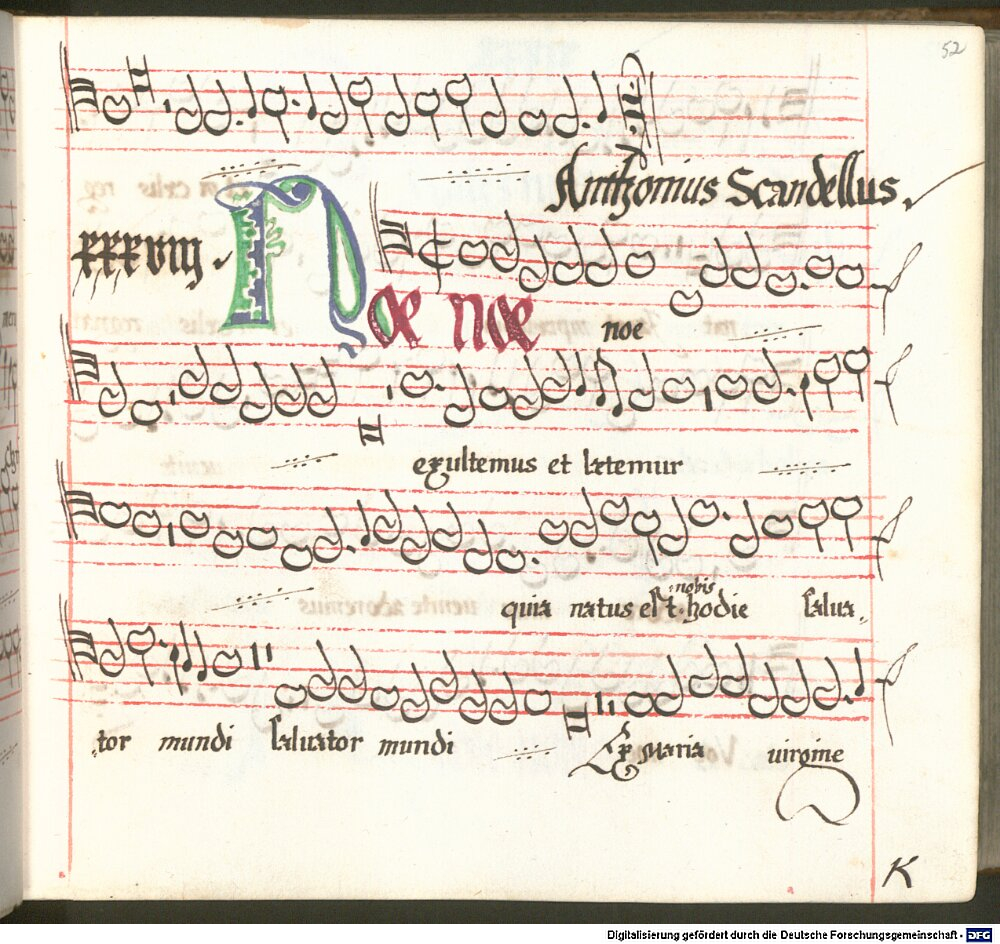 52
Anthonius Scandellus.
xxxviij.
Noæ noæ
noe
exultemus et lætemur
nobis
quia natus est hodie salua-
tor mundi saluator mundi Ex Maria uirgine
K
Digitalisierung gefördert durch die Deutsche Forschungsgemeinschaft - DFG